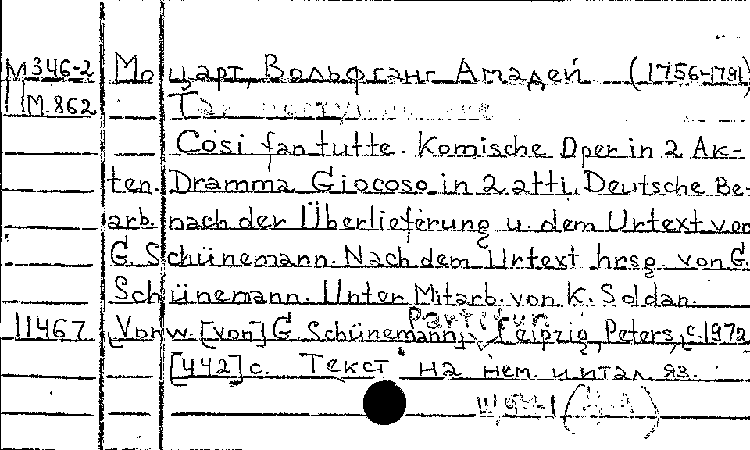 М346-2 Моцарт, Вольфганг Амадей (1756-1791)
М 862 Так поступают все
Cosi fan tutte. Komische Oper in 2 Ak-
ten. Dramma Giocoso in 2 atti. Deutsche Be-
arb. nach der Überlieferung u. dem Urtext von
G. Schünemann. Nach dem Urtext hrsg. von G.
Schünemann. Unter Mitarb. von K. Soldan.
Partitur
11467 Vorw. [von] G. Schünemann. Leipzig, Peters, c. 1972
[442] с. Текст на нем. и итал. яз.